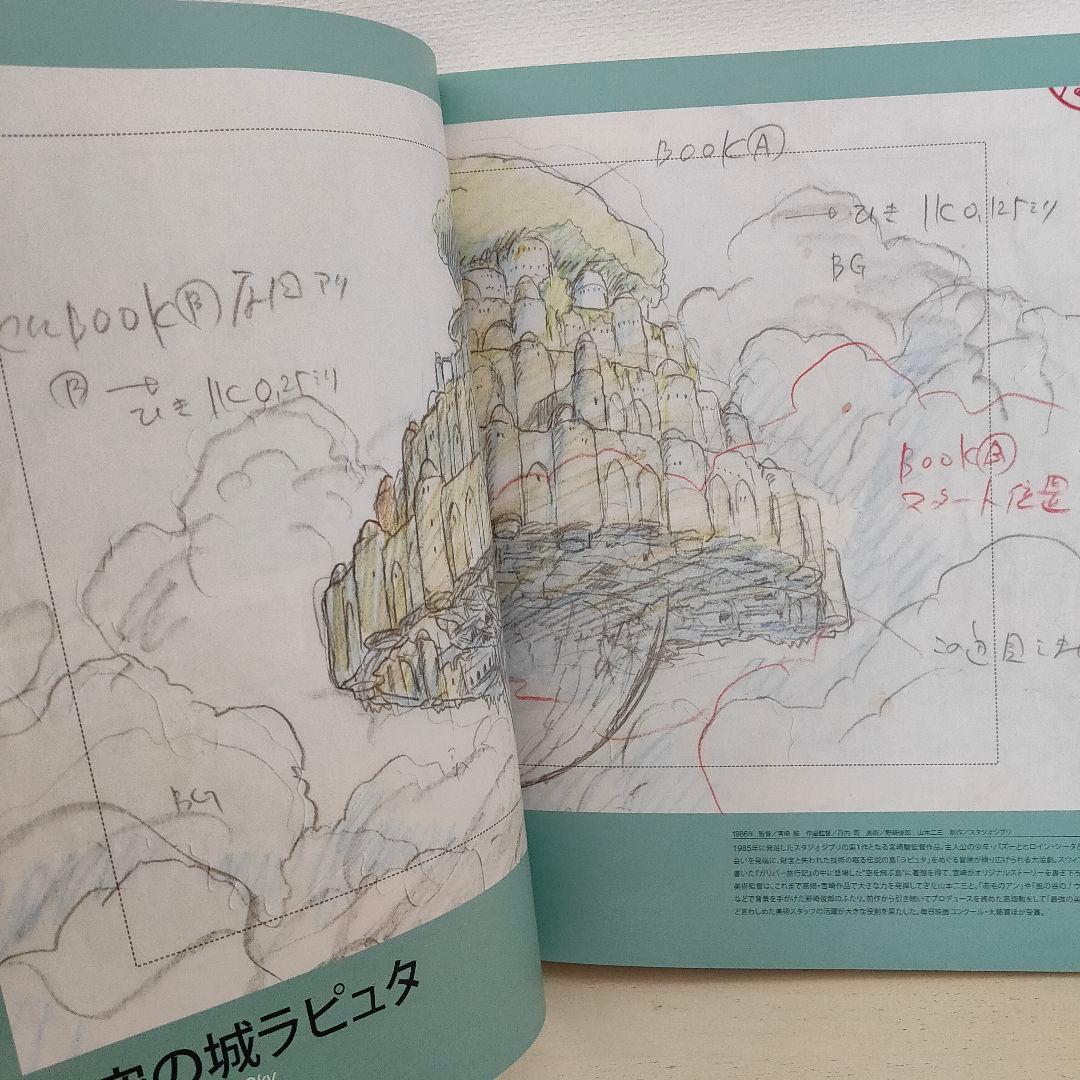 BOOK Ⓑ
Ⓑ → ひき 1K 0.25ミリ
BG
の城ラピュタ
BOOK Ⓐ
→ ひき 1K 0.125ミリ
BG
BOOK Ⓐ
スタート位置
1986年 監督／宮崎 駿 作画監督／丹内 司 美術／野崎俊郎 山本二三 制作／スタジオジブリ
1985年に発足したスタジオジブリの第1作となる宮崎駿監督作品。主人公の少年・パズーとヒロイン・シータと
会いを発端に、財宝と失われた技術の眠る伝説の島「ラピュタ」をめぐる冒険が繰り広げられる大活劇。スウィ
書いた『ガリバー旅行記』の中に登場した“空を飛ぶ島”に着想を得て、宮崎がオリジナルストーリーを書き下ろ
美術監督は、これまで高畑・宮崎作品で大きな力を発揮してきた山本二三と。『赤毛のアン』や『風の谷のナウ
などで背景を手がけた野崎俊郎のふたり。前作から引き続いてプロデュースを務めた高畑勲をして「最強の美
と言わしめた美術スタッフの活躍が大きな役割を果たした。毎日映画コンクール・大藤賞ほか受賞。